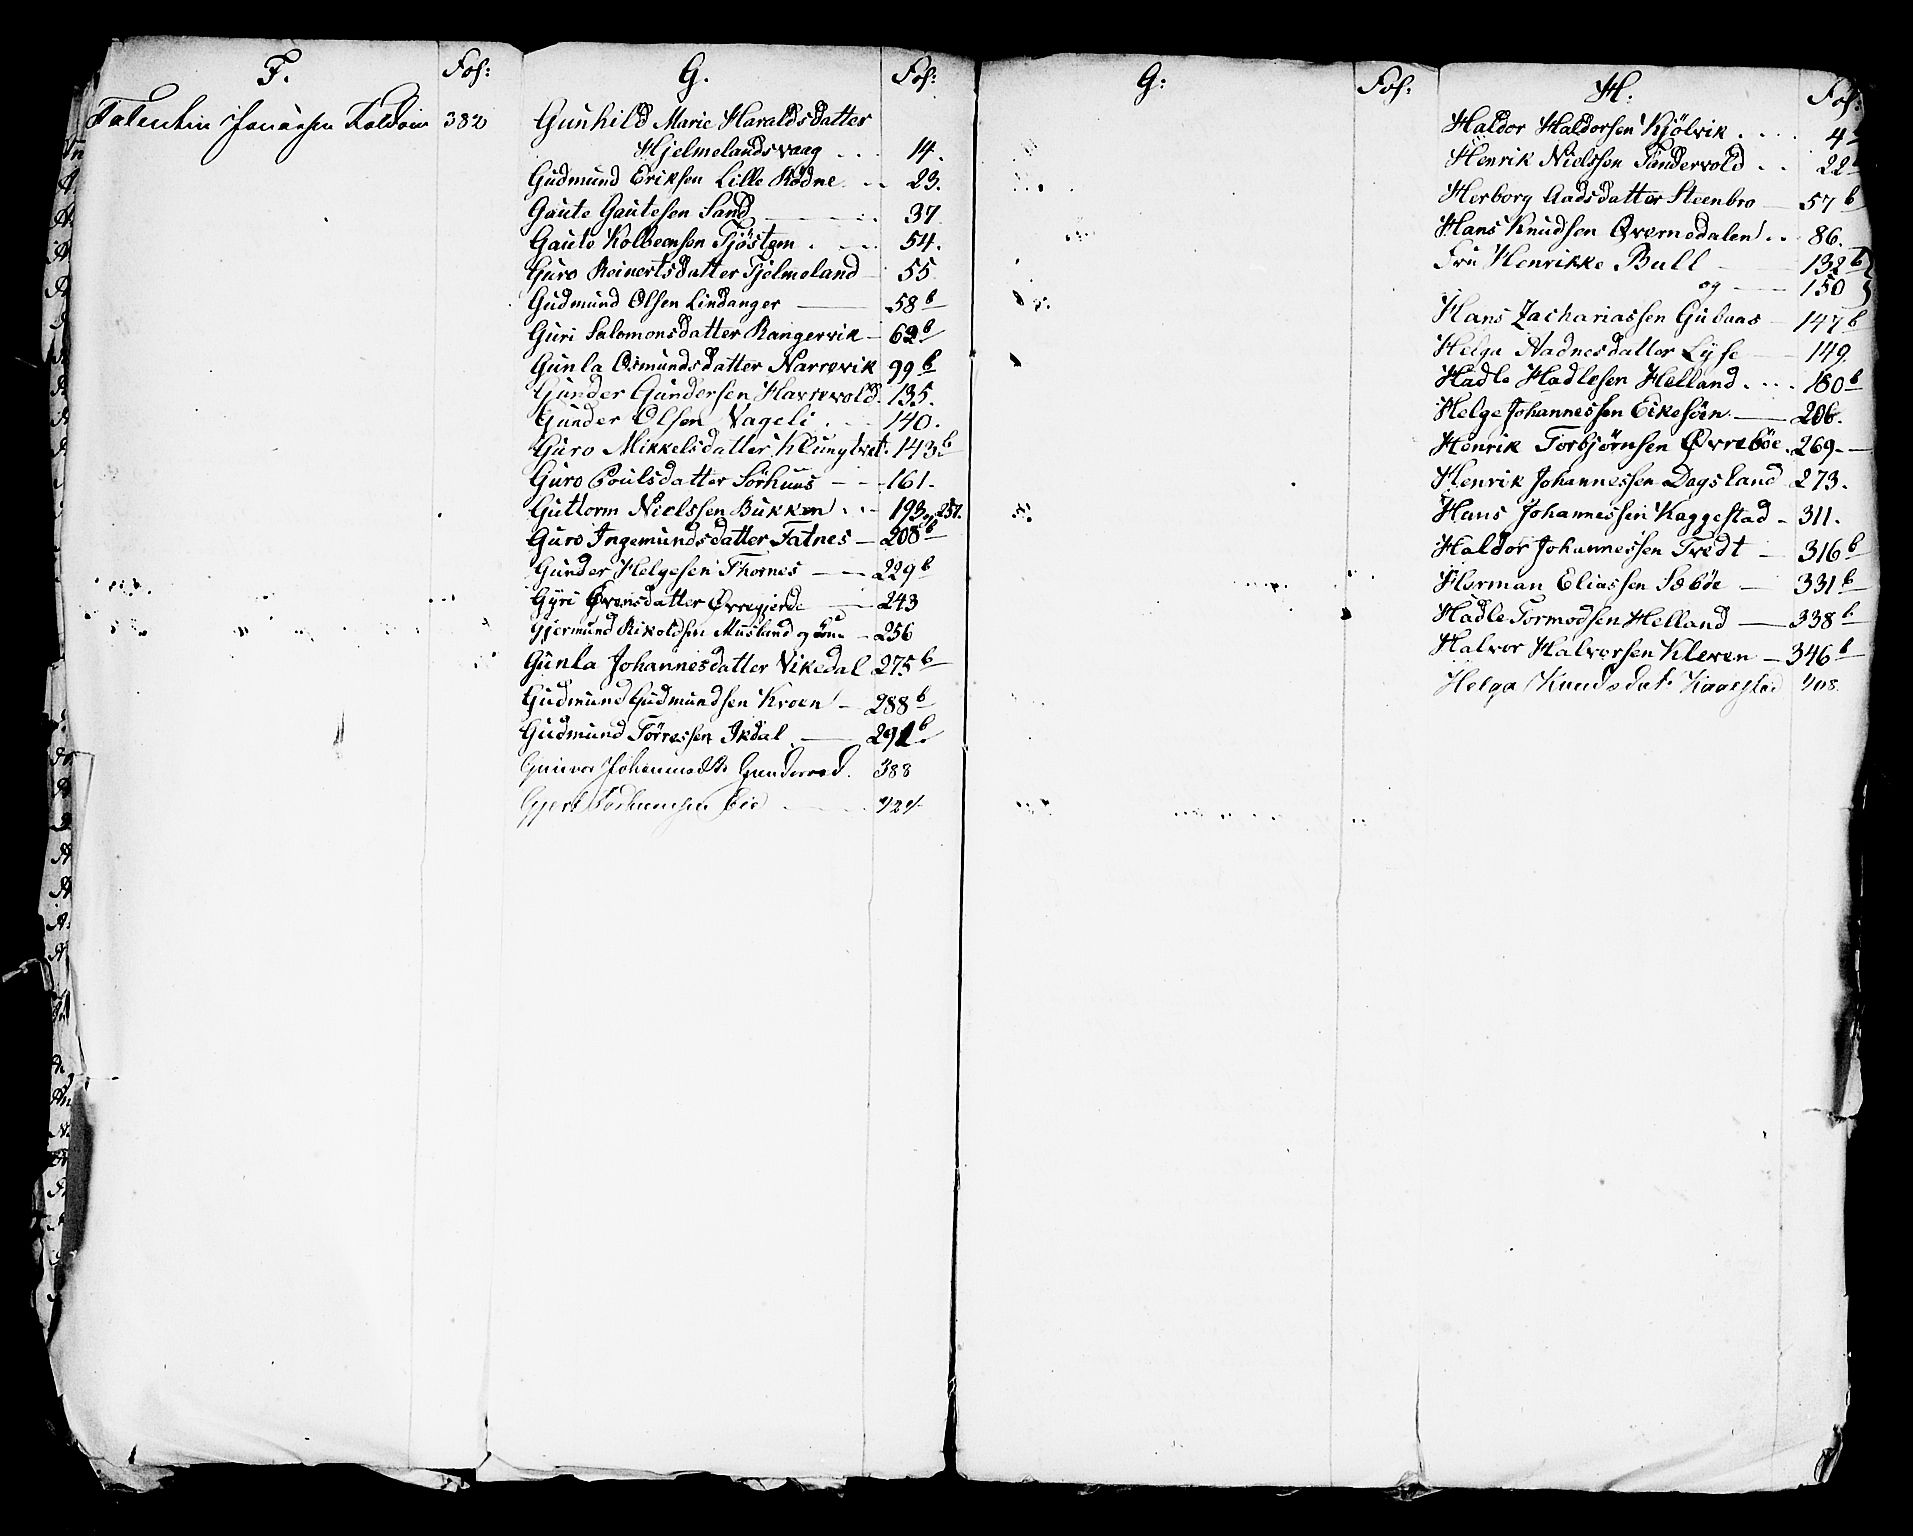 F.
Fol:
382
G.
Fol:
Gunhild Marie Haraldsdatter
Hjelmelandsvaag . . . 14.
Gudmund Eriksen Lille Rødne . . 23.
Gaute Gautesen Sand 37
Gaute Kolbeensen Tjøstem . 54.
Guro Reinertsdatter Hjelmeland 55.
Gudmund Olsen Lindanger 58 b
Guri Salomonsdatter Rangervik 62 b
Gunla Osmundsdatter Narrevik 99 b
Gunder Gundersen Harrevold 135.
Gunder Olsen Vageli . . 140.
Guro Mikkelsdatter Klungtvet 143 b
Guro Poulsdatter Sørhuus 161.
Guttorm Nielssen Bukken . . 193, 257.
Guro Ingemundsdatter Fatnes 208 b
Gunder Helgesen Thornes 229 b
Gyri Ørensdatter Øvregjerde 243
Gjermund Rikoldsen Musland og 256
Gunla Johannesdatter Vikedal 275 b
Gudmund Gudmundsen Kroen 288 b
Gudmund Tørressen Ikdal 291 b
388
424
G:
Fol:
H:
Fol:
Haldor Haldorsen Kjölvik . . . . 4
Henrik Nielssen Søndervold . . 22
Herborg Aadsdatter Steenbro 57 b
Hans Knudsen Qvernedalen . . 86.
Fru Henrikke Bull 132 b
og 150
Hans Zachariassen Gubaas 147 b
Helga Aadnesdatter Lyse 149
Hadle Hadlesen Helland . . . . 180 b
Helge Johannessen Eikesøen 206.
Henrik Torbjørnsen Øvrebøe 269.
Henrik Johannessen Dagsland 273.
Hans Johannessen Kaggestad 311.
Haldor Johannessen Tvedt 316 b
Herman Eliassen Søbøe 331 b
Hadle Tormodsen Helland 338 b.
Halvor Halvorsen Kleven 346 b
Helga Knudsdat. 408.